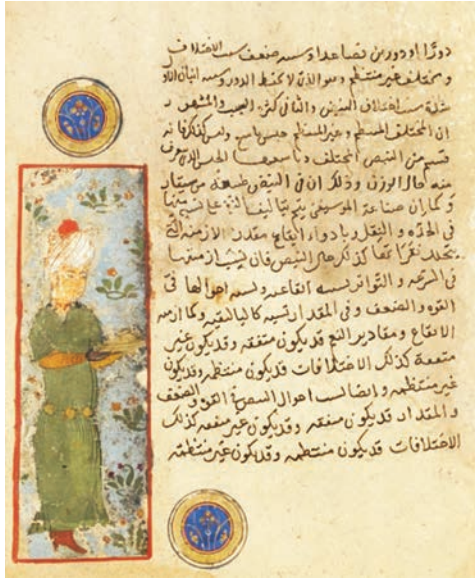 دورًا او دورين فصاعدا الاختلاف
ومختلف غير منتظم وهو الذي لا يحفظ الدور
اختلاف النبض والثاني كثير العجب والمشهور
ان المختلف المنتظم وغير المنتظم جنس تاسع وليس كذلك فانه
قسم من النبض المختلف وتاسعها الجنس الذي يعرف
منه حال الوزن وذلك ان في النبض طبيعة موسيقار
وكما ان صناعة الموسيقي يتم بتاليف النغم على نسبة بينها
في الحدة و الثقل وبادوار ايقاع مقدار الازمنة التي
يتخلل نقراتها كذلك حال النبض فان نسبة ازمنتها
في السرعة و التواتر نسبة ايقاعية ونسبة احوالها في
القوة والضعف وفي المقدار نسبة كالتاليفية وكما ازمنة
الايقاع ومقادير النغم قد يكون متفقة وقد يكون غير
متفقة كذلك الاختلافات قد يكون منتظمة وقد يكون
غير منتظمة وايضا نسب احوال النبض في القوة والضعف
والمقدار قد يكون متفقة وقد يكون غير متفقة كذلك
الاختلافات قد يكون منتظمة وقد يكون غير منتظمة